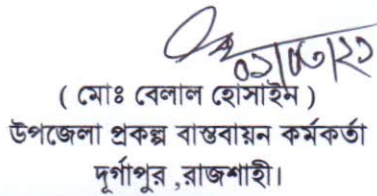 ০১/০৩/২১
( মোঃ বেলাল হোসাইন )
উপজেলা প্রকল্প বাস্তবায়ন কর্মকর্তা
দূর্গাপুর ,রাজশাহী।